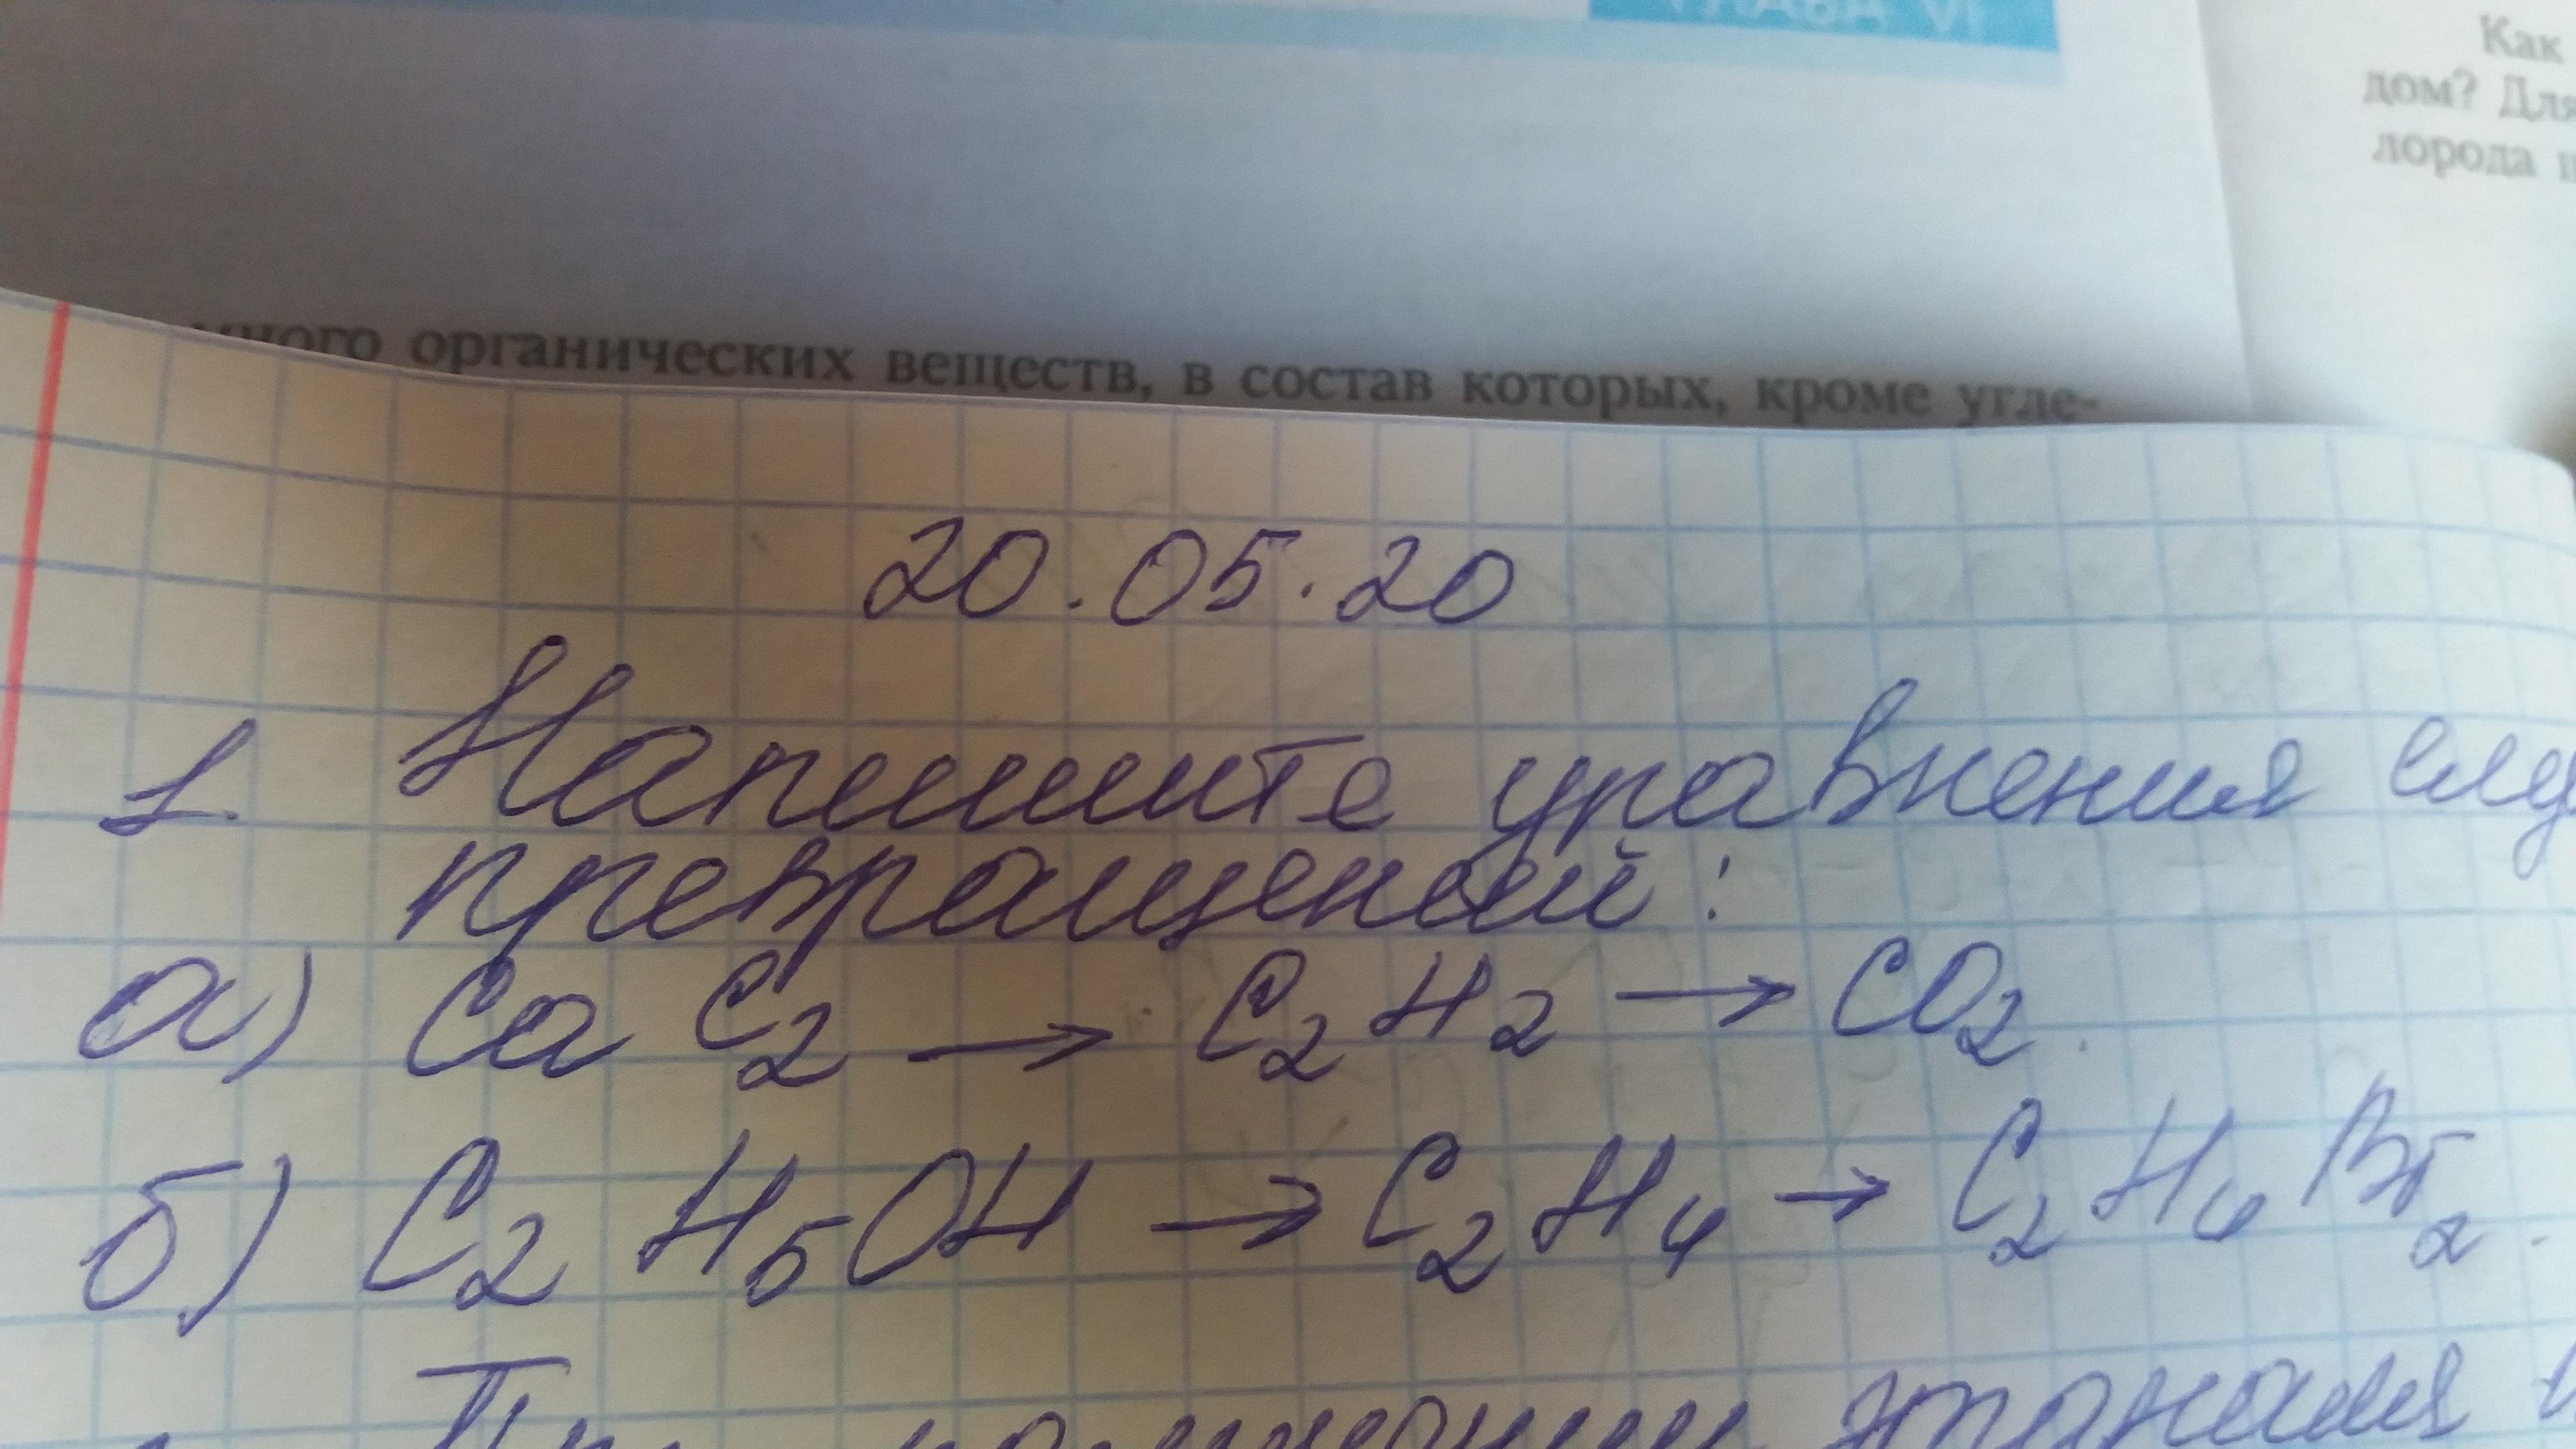 ГЛАВА VI
Как
дом? Для
лорода
много органических веществ, в состав которых, кроме угле-
20.05.20
1. Напишите уравнения
превращений:
а) CaC₂ → C₂H₂ → CO₂.
б) C₂H₅OH → C₂H₄ → C₂H₄Br₂.
этанала